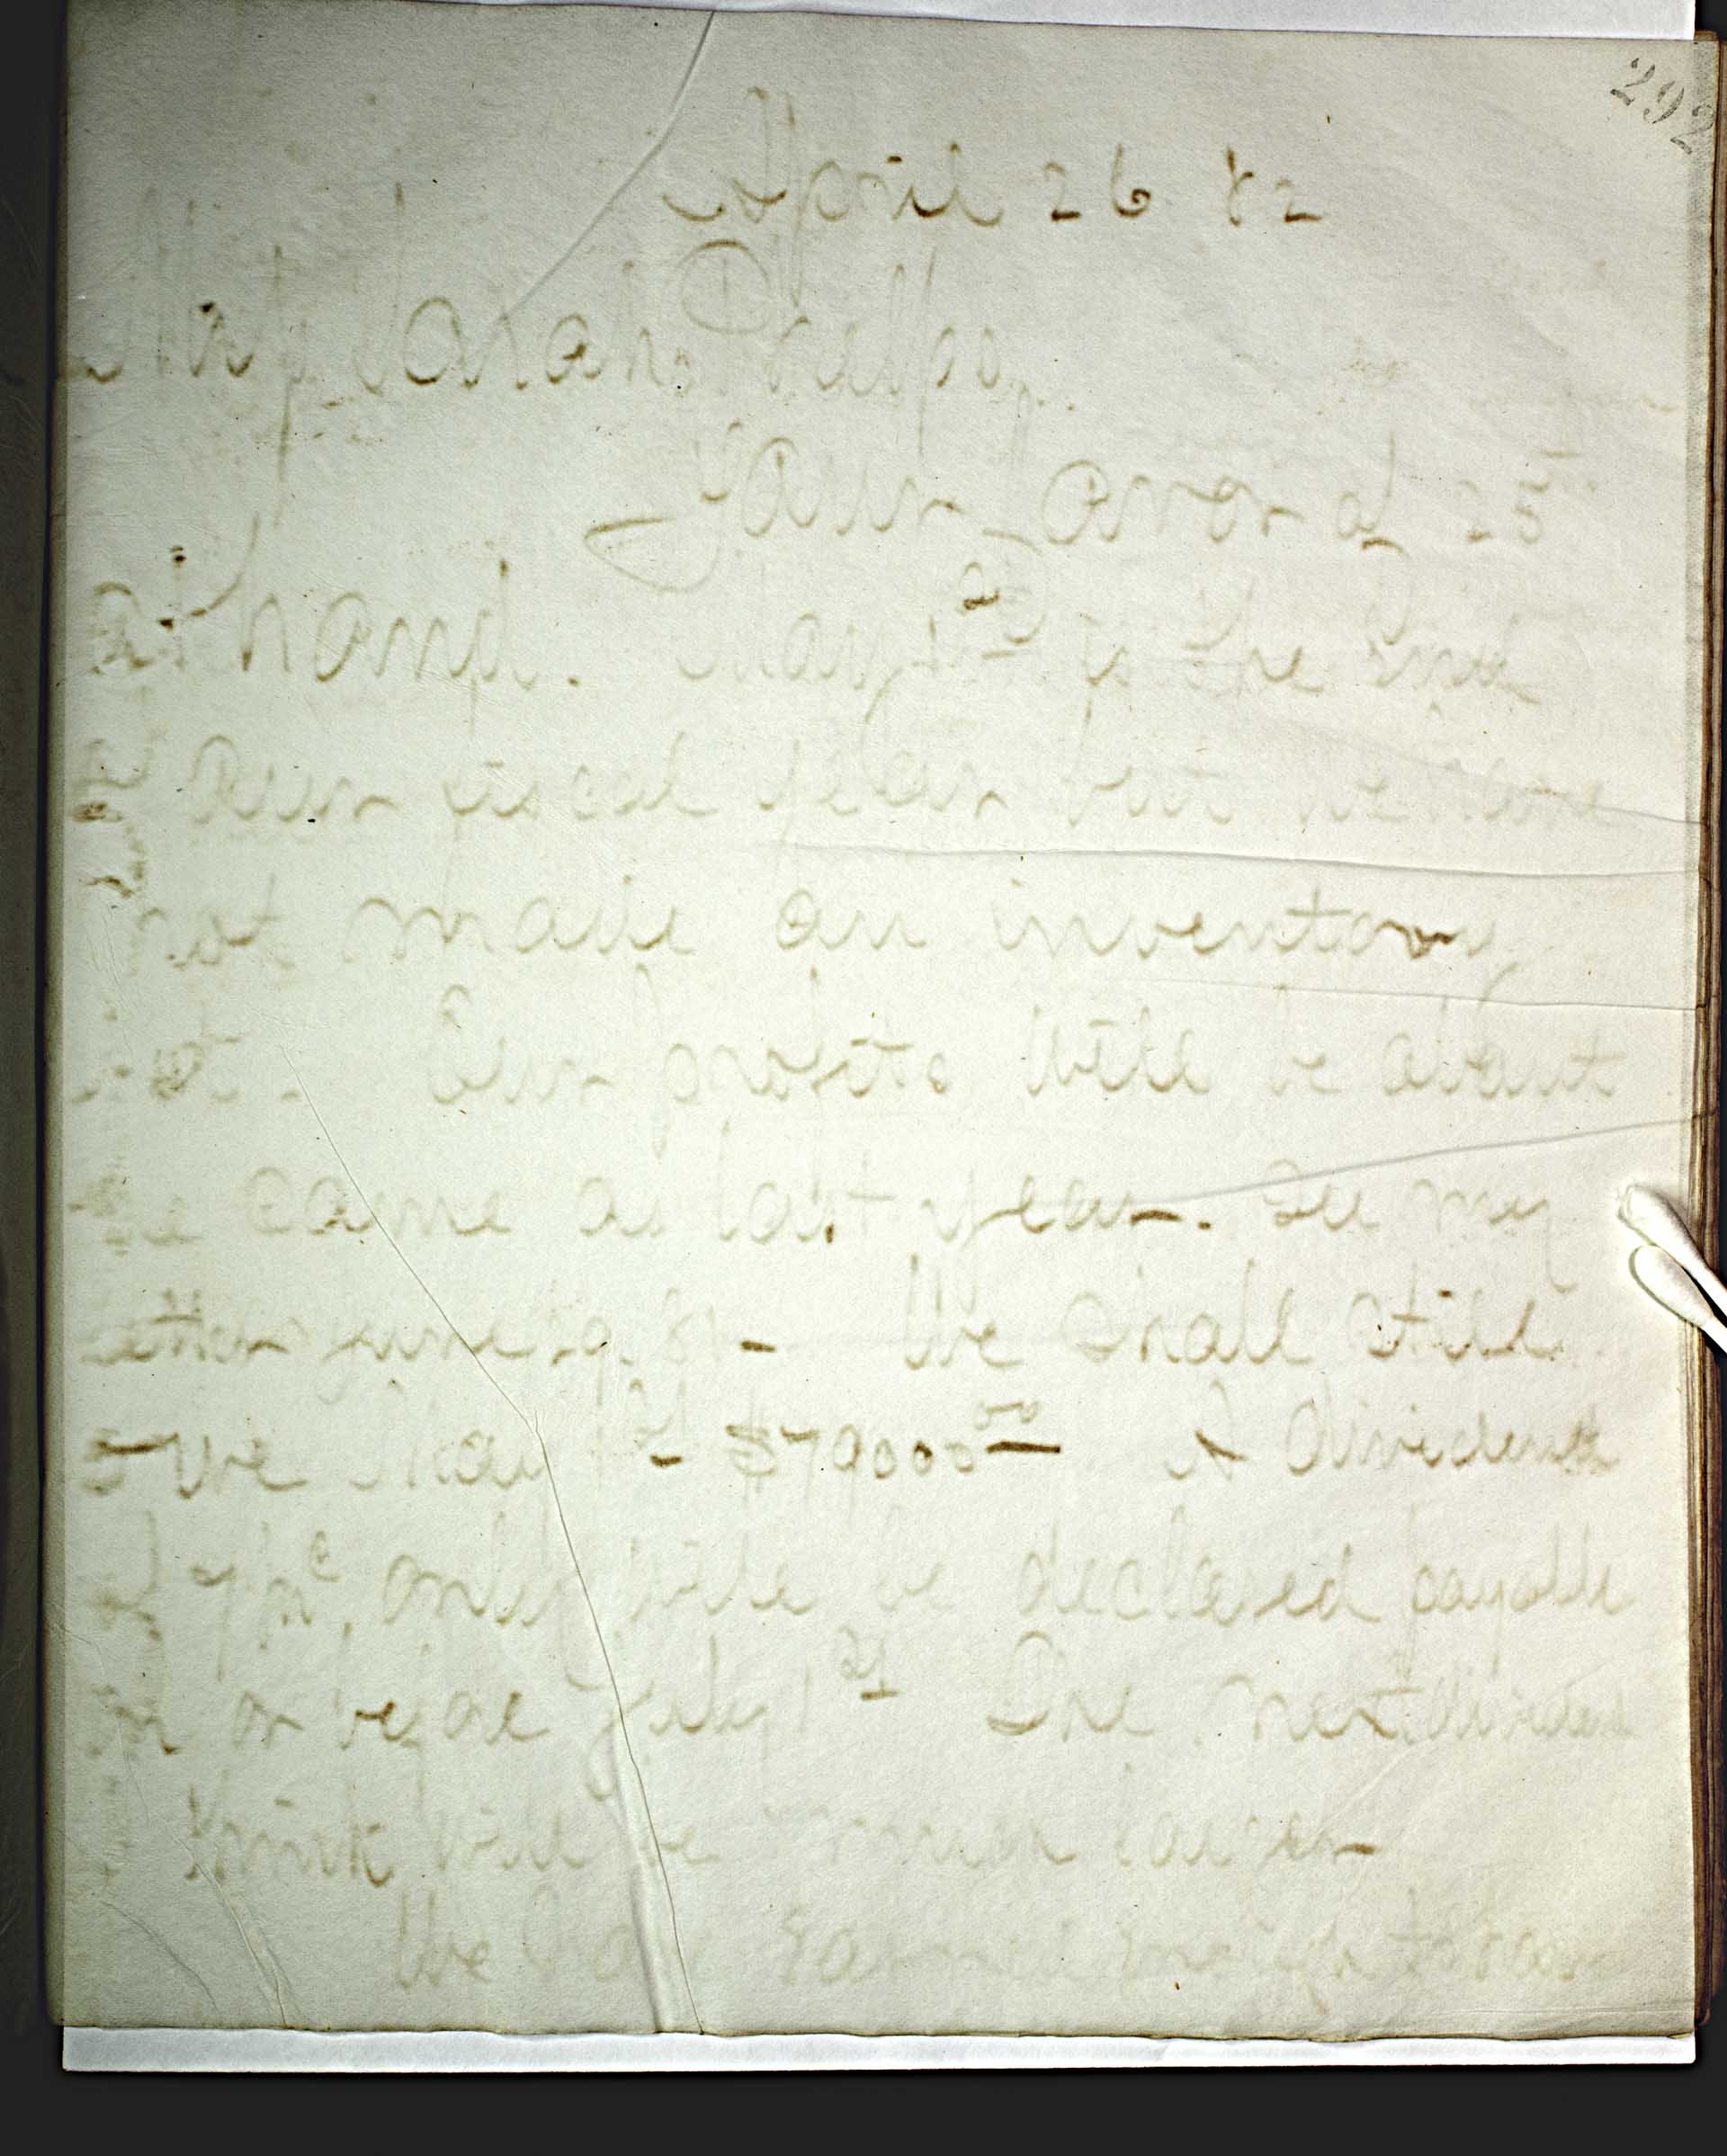 292
April 26 82
Miss Sarah Phelps,
Your favor of 25
at hand. May 1st is the end
of our fiscal year but we have
not made an inventory
yet. Our profits will be about
the same as last year. See my
letter June 29. 81 - We shall still
owe May 1st $79000 00 A dividend
of 7 pr c, only will be declared payable
on or before July 1st The next dividend
I think will be much larger
We have earned enough to